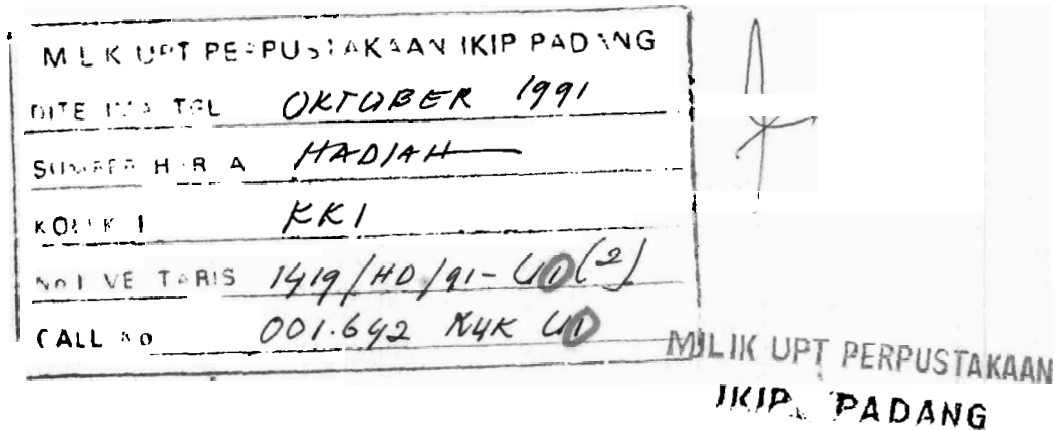 MILIK UPT PERPUSTAKAAN IKIP PADANG
DITERIMA TGL OKTOBER 1991
SUMBER HARGA HADIAH
KOLEKSI KKI
No INVENTARIS 1419/HD/91-
CALL No 001.642
MILIK UPT PERPUSTAKAAN
IKIP PADANG